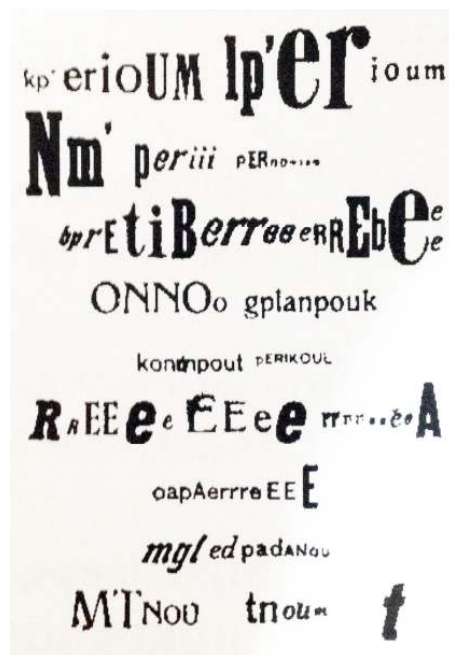 kp' erioUM lp'er ioum
Nm' periii pERnoo----
bprEtiBerreeeRREbeee
ONNOo gplanpouk
konmpout pERIKOUL
RREEEe EEee rrrr..eeA
oapAerrreEEE
mgl ed padANou
MTNou tnoum t